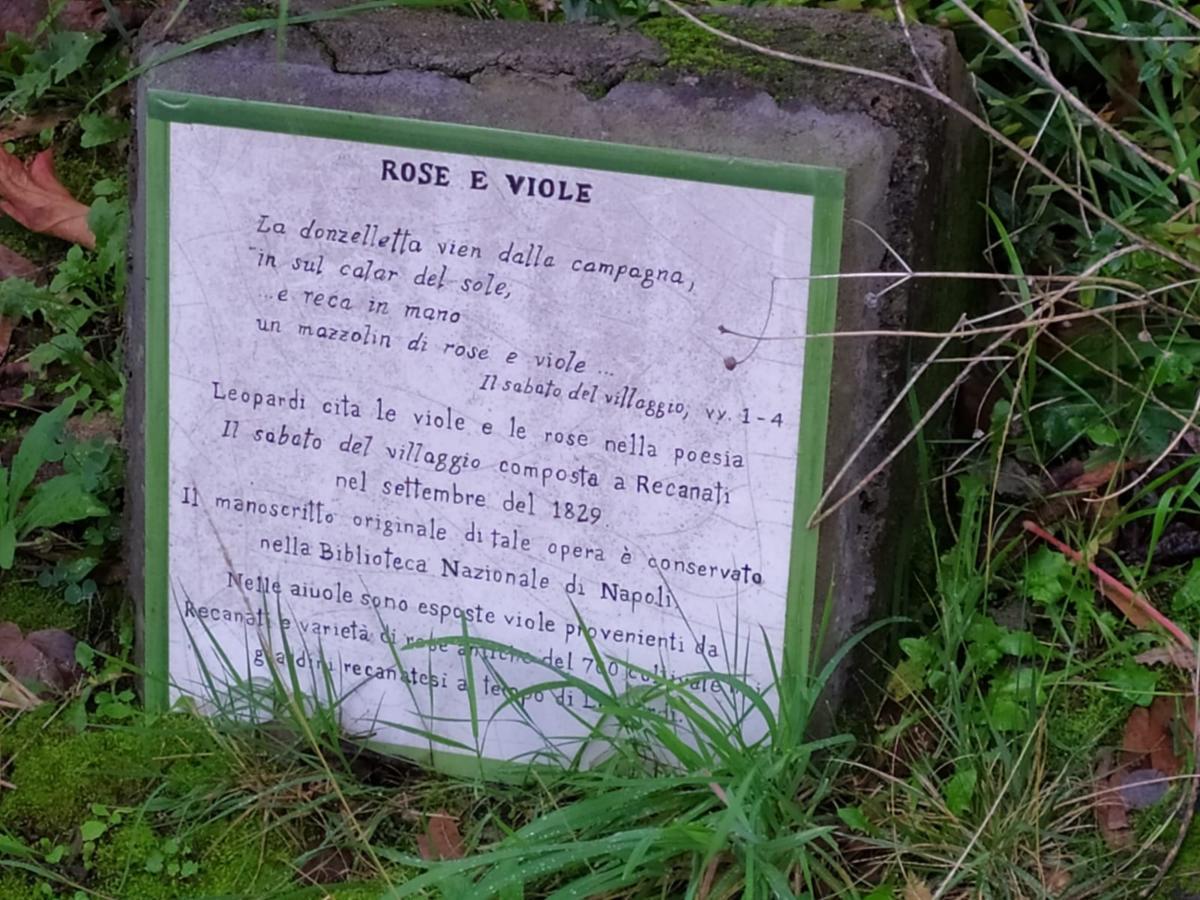 ROSE E VIOLE
La donzelletta vien dalla campagna,
in sul calar del sole,
...e reca in mano
un mazzolin di rose e viole ...
Il sabato del villaggio, vv. 1-4
Leopardi cita le viole e le rose nella poesia
Il sabato del villaggio composta a Recanati
nel settembre del 1829
Il manoscritto originale di tale opera è conservato
nella Biblioteca Nazionale di Napoli.
Nelle aiuole sono esposte viole provenienti da
Recanati e varietà di rose antiche del 700 coltivate
giardini recanatesi a tempo di